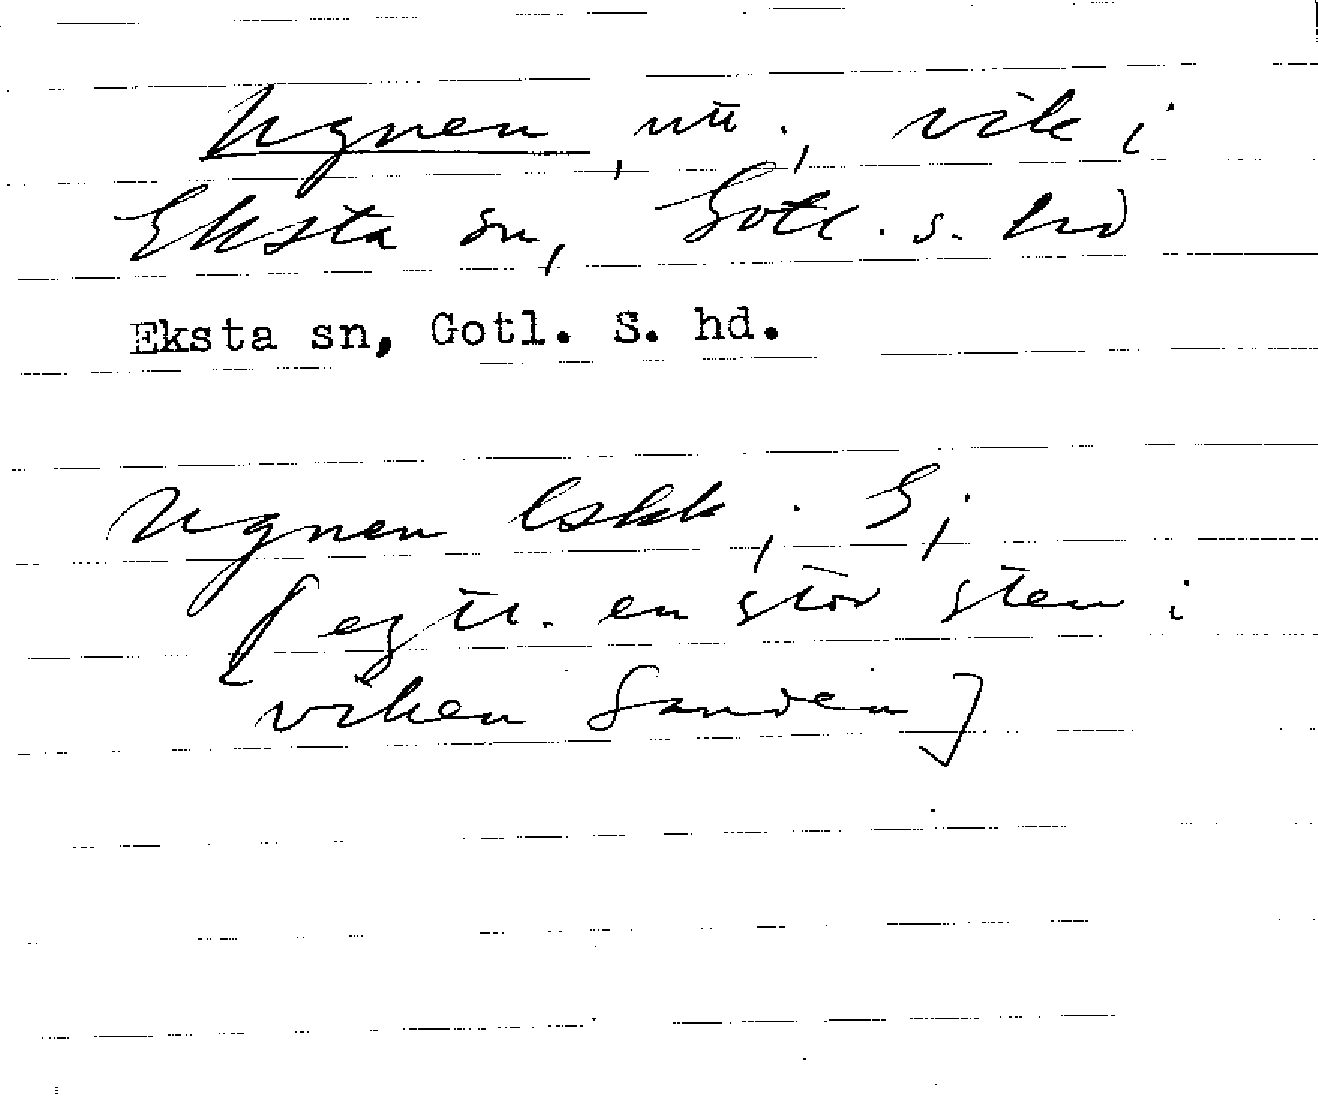 Ugnen, nu., vik i
Eksta sn, Gotl. s. hd
Eksta sn, Gotl. S. hd.
Ugnen Eskk, S;
[egtl. en stor sten i
viken Sanden]